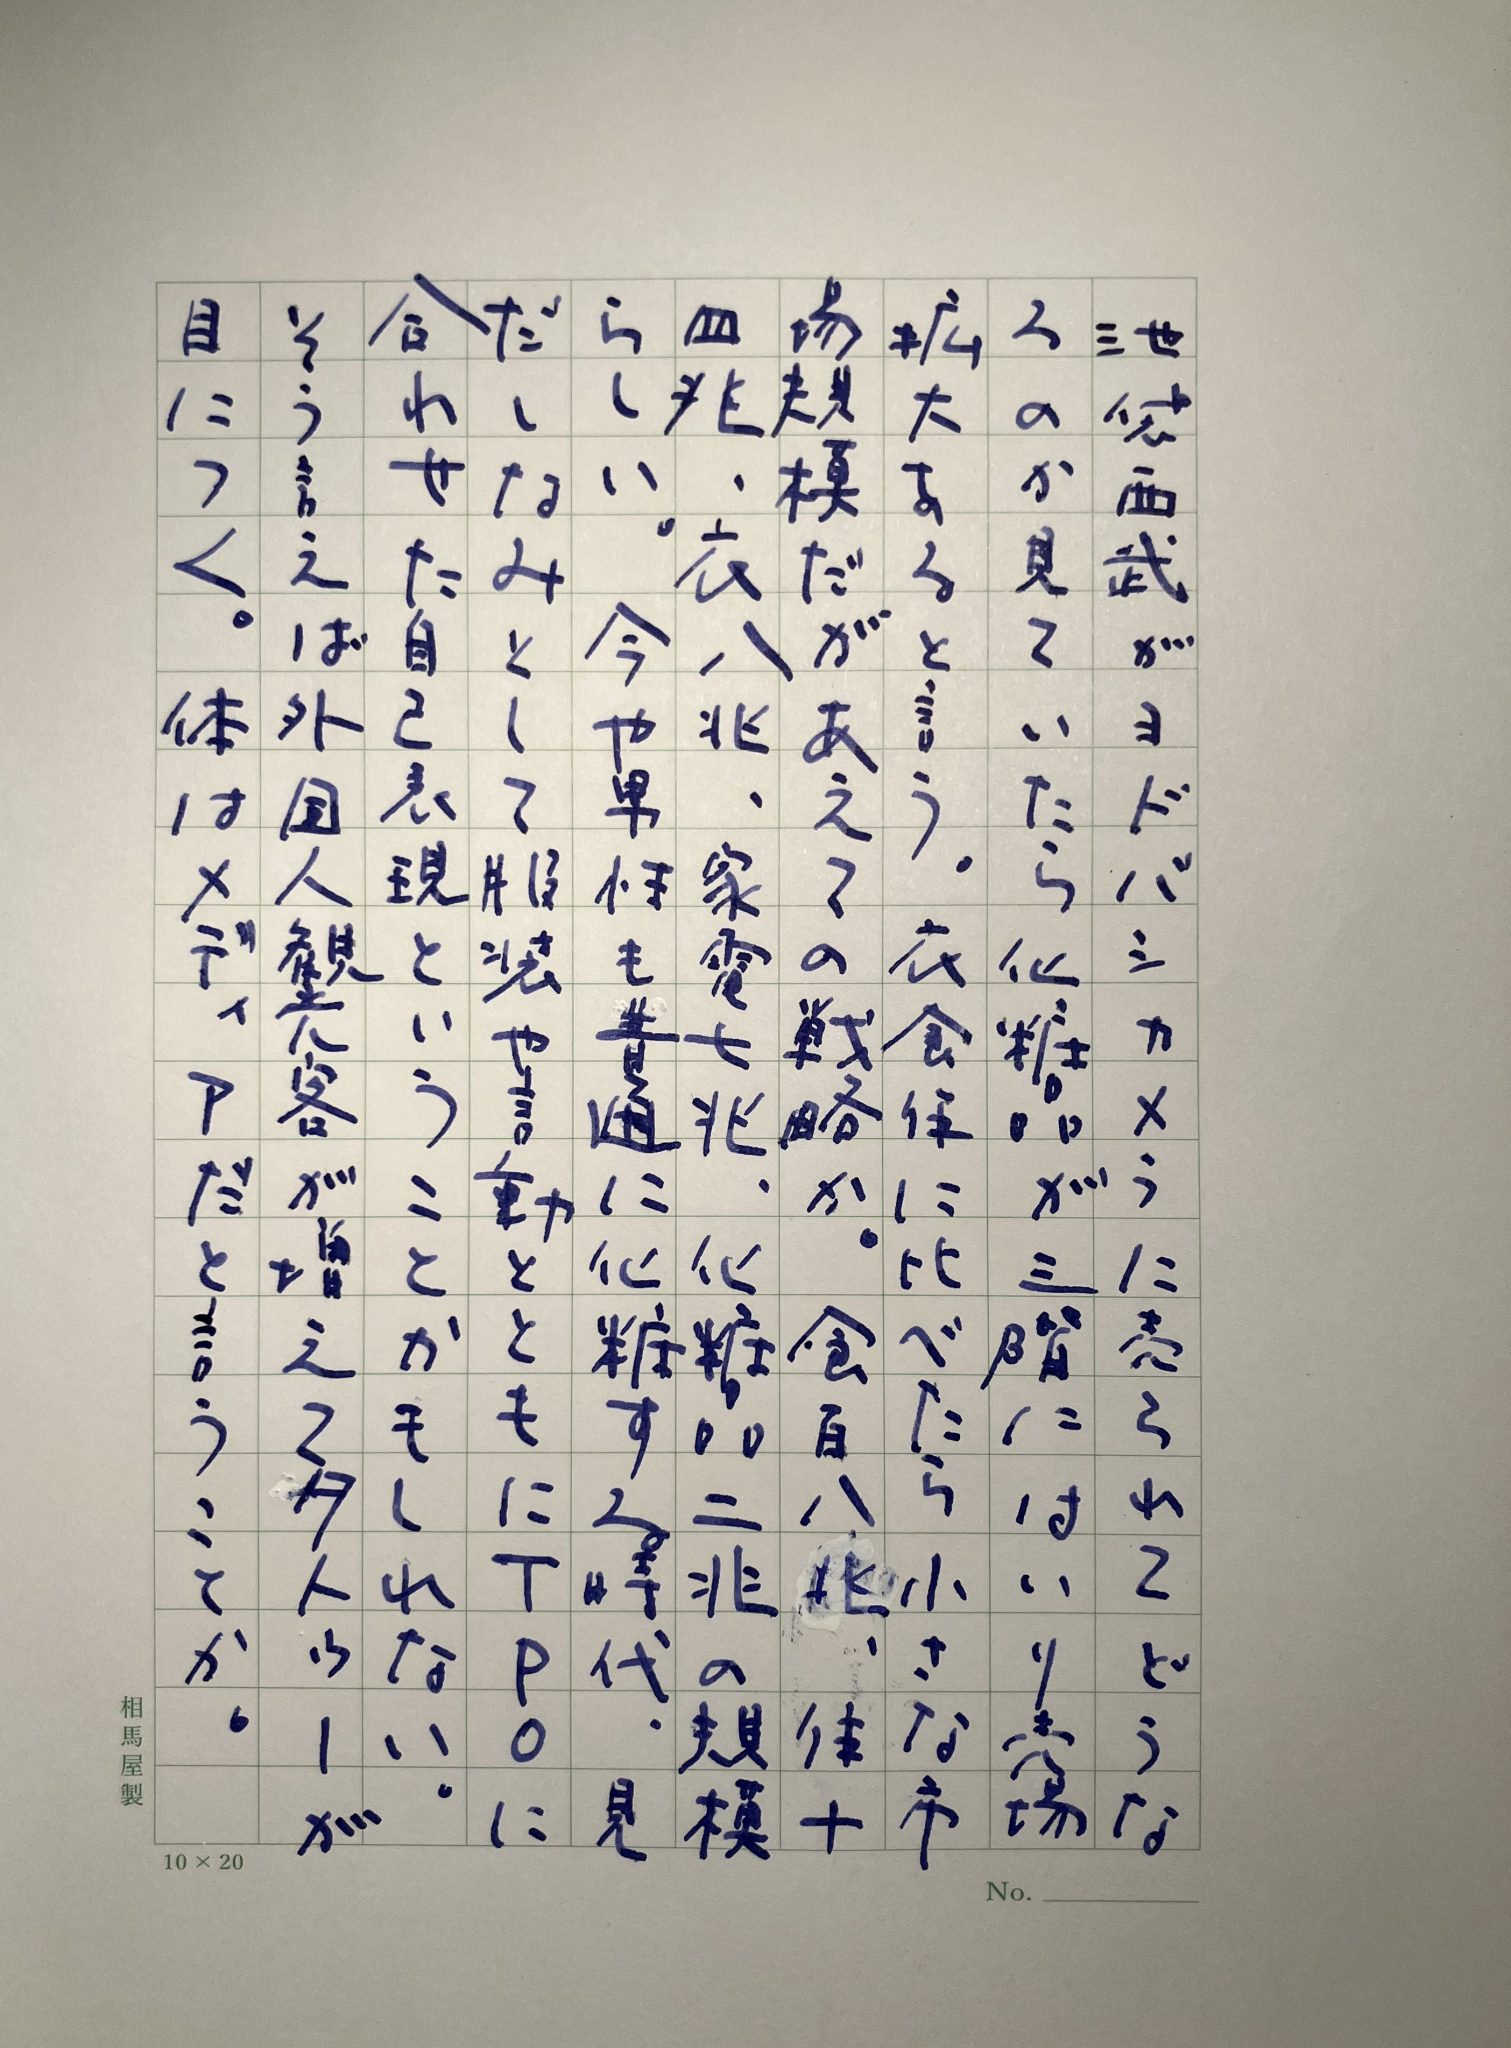 池袋西武がヨドバシカメラに売られてどうな
るのか見ていたら化粧品が三階にはいり売場
拡大あると言う。衣食住に比べたら小さな市
場規模だがあえての戦略か。食百八兆、住十
四兆、衣八兆、家電七兆、化粧品二兆の規模
らしい。今や男性も普通に化粧する時代。見
だしなみとして服装や言動とともにTPOに
合わせた自己表現ということかもしれない。
そう言えば外国人観光客が増えて夕人ゥーが
目につく。体はメディアだと言うことか。
相馬屋製
10×20
No.